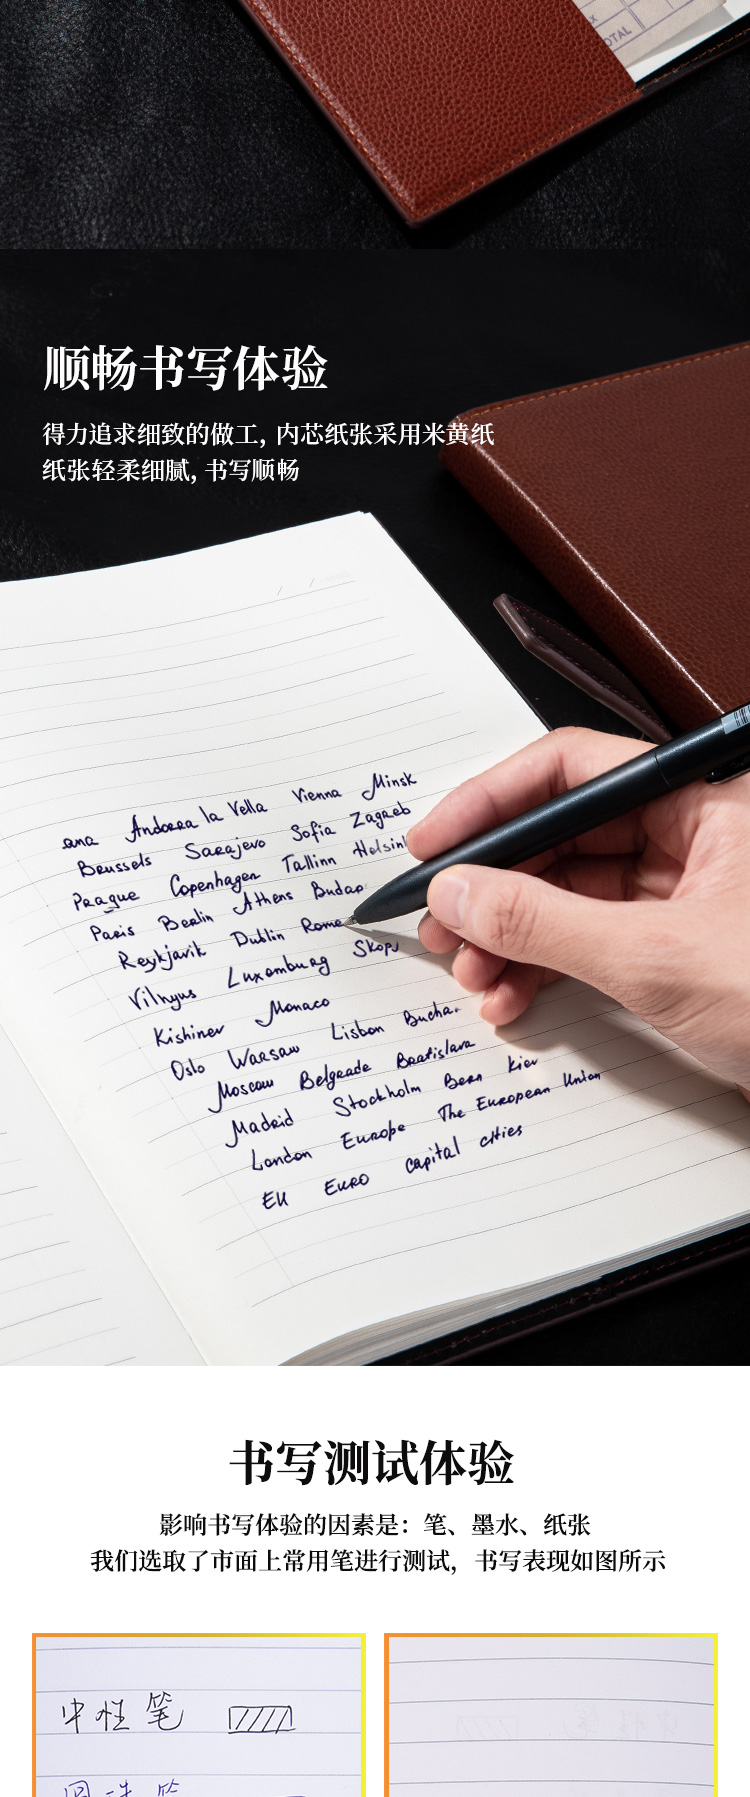 OTAL
顺畅书写体验
得力追求细致的做工, 内芯纸张采用米黄纸
纸张轻柔细腻, 书写顺畅
ana Andorra la Vella Vienna Minsk
Brussels Sarajevo Sofia Zagreb
Prague Copenhagen Tallinn Helsink
Paris Berlin Athens Budap
Reykjavik Dublin Rome
Vilnyus Luxemburg Skopj
Kishinev Monaco
Oslo Warsaw Lisbon Bucha
Moscow Belgrade Bratislava
Madrid Stockholm Bern Kiev
London Europe The European Union
EU EURO capital cities
书写测试体验
影响书写体验的因素是：笔、墨水、纸张
我们选取了市面上常用笔进行测试，书写表现如图所示
中性笔